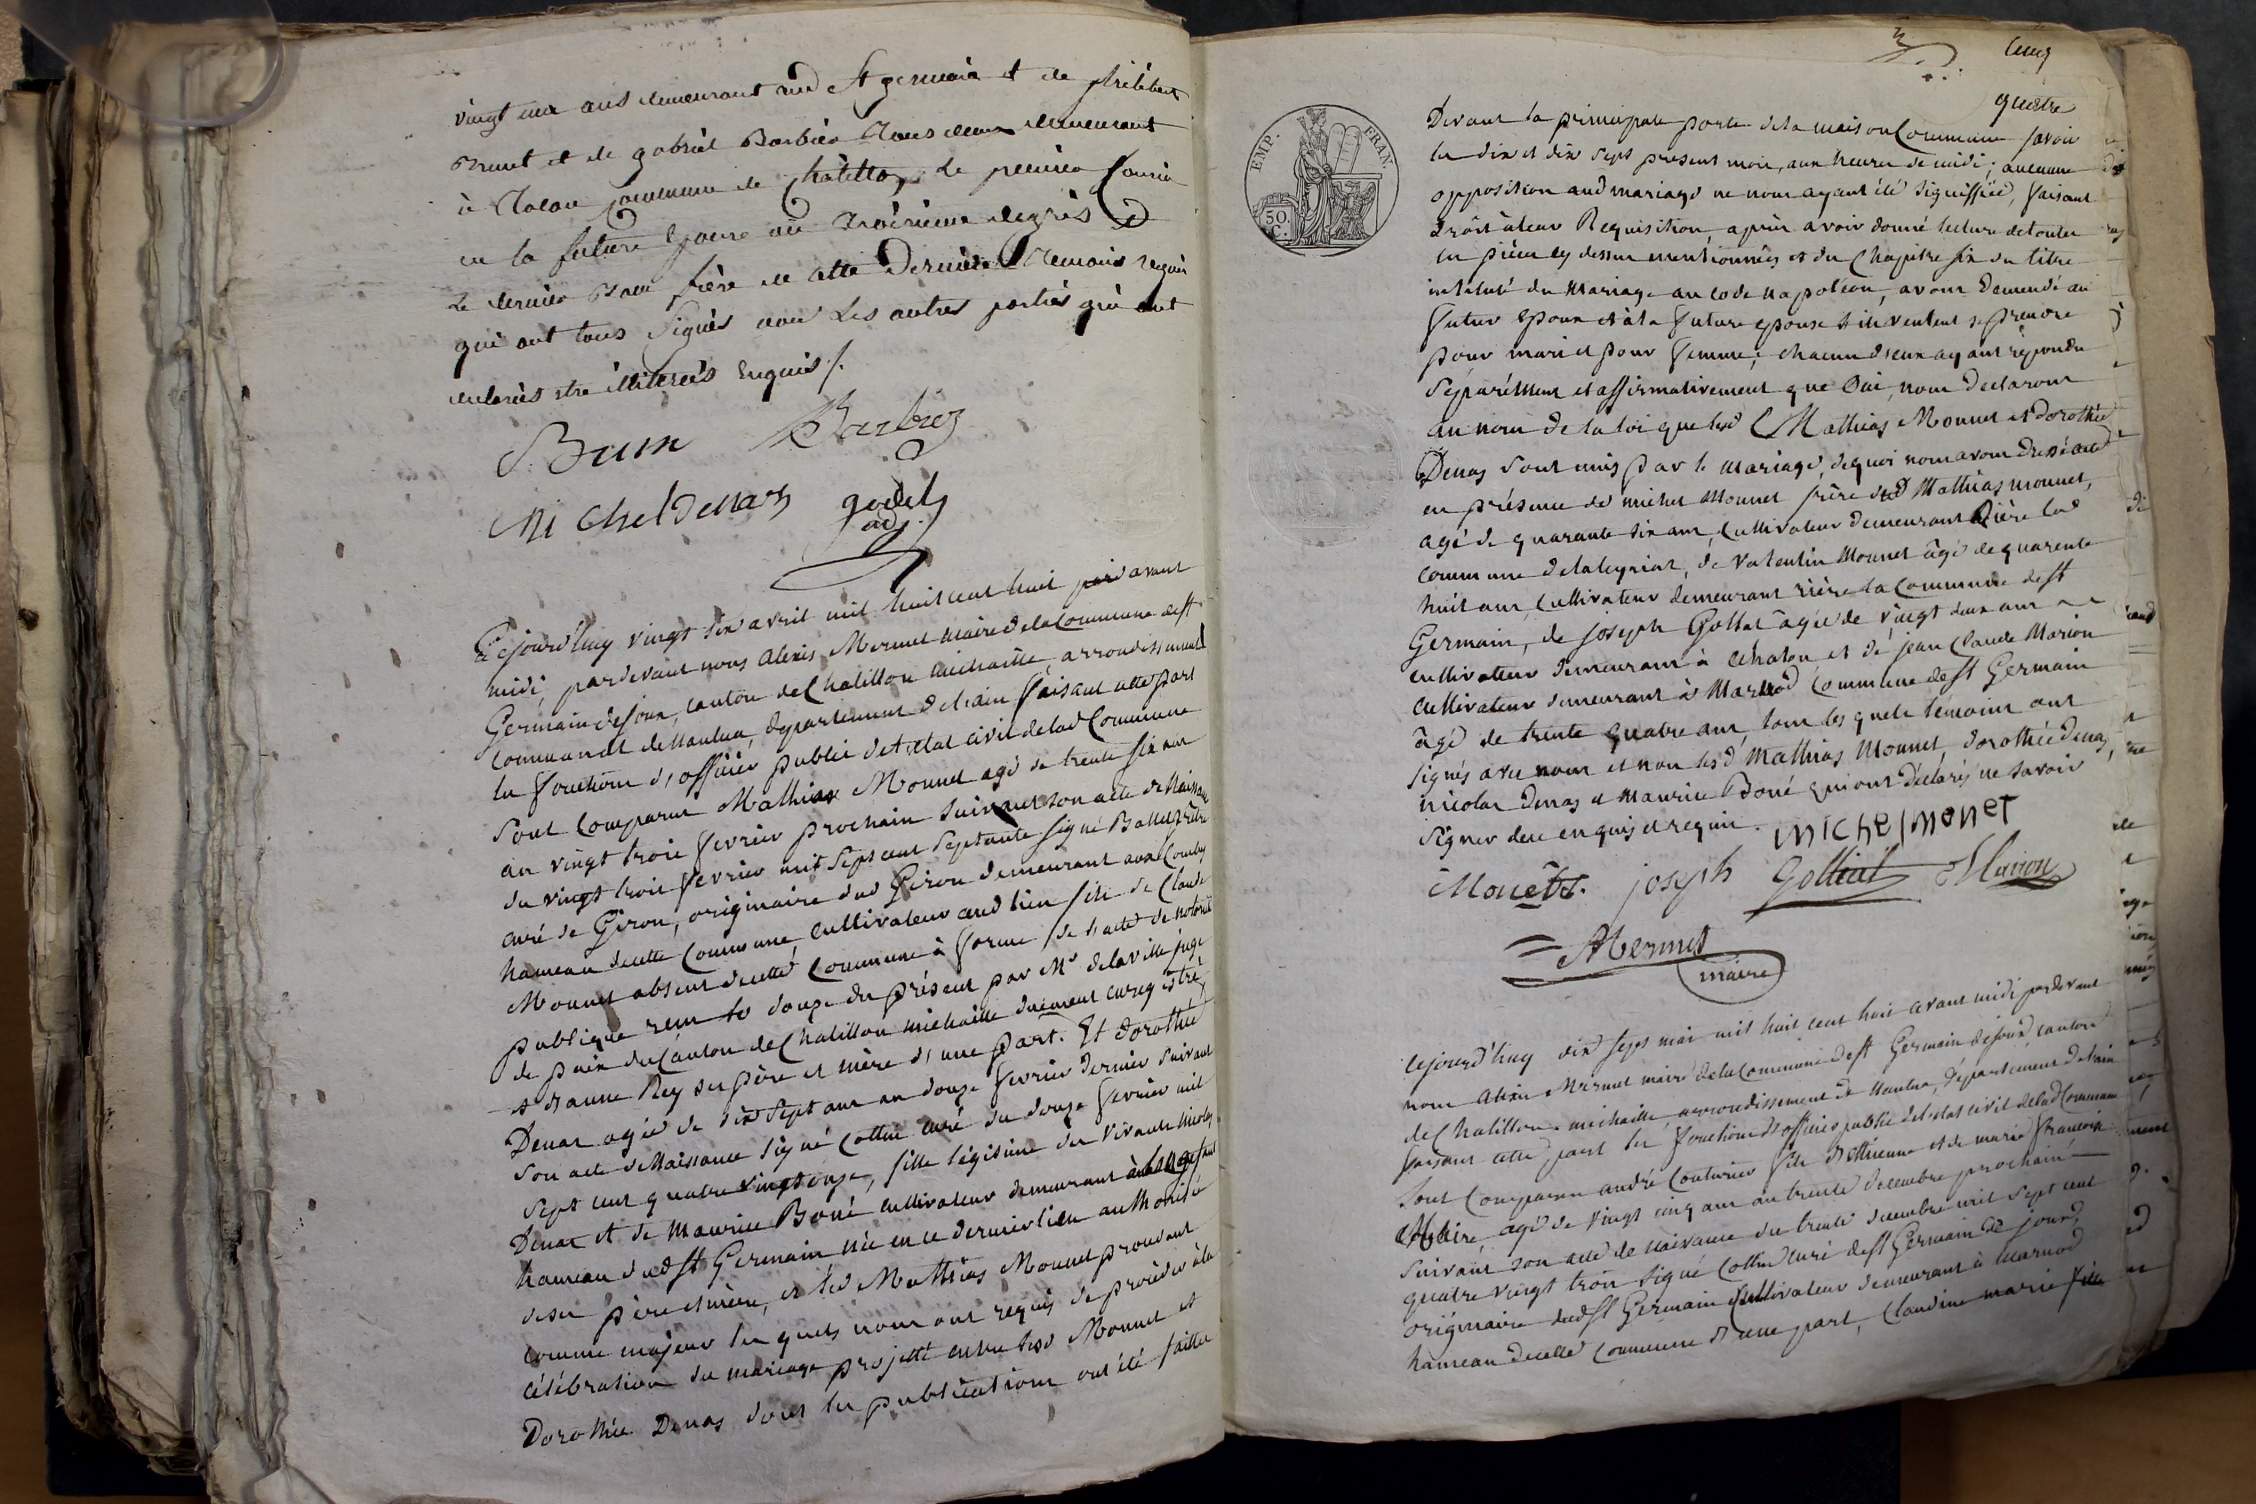 vingt un ans demeurant aud St germain et de philibert
Brunet et de gabriel Barbier Tous deux demeurant
à Tacon commune de Chatillon le premier Cousin
en la future Epouse au troisième degrès
Le dernier Beau frère de cette Dernière Temoins requis
qui ont tous Signés avec Les autres parties qui ont
declarés etre illiterés Enquis /.
Brun Barbiez
Michel Denas godet
adj.
Cejourd'huy vingt six avril mil huit cent huit avant
midi, pardevant nous alexis Mermet maire de la Commune de St
Germain de Joux, canton de Chatillon michaille, arrondissement
communal de Nantua, departement de l'ain faisant cette part
les fonctions d'officier public de l'etat civil de lad Commune
Sont comparus Mathias Monnet agé de trente six ans
au vingt trois fevrier prochain suivant son acte de Naissance
du vingt trois fevrier mil sept cent septante signé Ballet prêtre
curé de Giron, originaire dud Giron demeurant aux Combes
hameau de cette Commune cultivateur aud lieu fils de Claude
Monnet absent de cette Commune à forme de l'acte de notorieté
publique reçu le douze du présent par Mr delaville juge
de paix du Canton de Chatillon michaille duement enregistré
et d'anne Rey ses père et mère d'une part. Et dorothée
Denas agée de dix sept ans au douze fevrier dernier suivant
son acte de Naissance signé Cottin curé du douze fevrier mil
sept cent quatre vingt onze, fille légitime des vivants nicolas
Denas et de Maurice Boné cultivateur demeurant
hameau dud St Germain née en ce dernier lieu authorisée
de ses père et mère, et led Mathias Monnet procédant
comme majeur lesquels nous ont requis de procéder à la
célébration du mariage projetté entre lesd Monnet et
Dorothée Denas dont les publications ont été faittes
cinq
Devant la principale porte de la maison Commune savoir
les dix et dix sept présent mois, aux heures de midi; aucune
opposition aud mariage ne nous ayant été signiffiée, faisant
droit à leur Requisition, après avoir donné lecture de toutes
les pièces cy dessus mentionnées et du Chapitre six du titre
intitulé du Mariage au code napoléon, avons demandé au
futur Epoux et à la future epouse s'ils veulent se prendre
pour mari et pour femme; chacun d'eux ayant répondu
séparément et affirmativement que Oui, nous declarons
au nom de la loi que lesd Mathias Monnet et dorothée
Denas sont unis par le mariage, de quoi nous avons dressé acte
en présence de michel Monnet frère dud Mathias monnet,
agé de quarante six ans, Cultivateur demeurant rière la
commune de laleyriat, de Valentin Monnet âgé de quarente
huit ans, Cultivateur demeurant rière la Commune de St
Germain, de Joseph Gollet âgé de vingt deux ans
cultivateur demeurant à Echalon, et de jean Claude Marion
cultivateur demeurant à Marnod commune de St Germain
âgé de trente quatre ans, tous lesquels temoins ont
signés avec nous et non lesd Mathias Monnet, dorothée Denas,
nicolas Denas et Maurice Boné qui ont déclarés ne savoir
signer de ce enquis et requis. michel monet
Monett. joseph Golliat Marion
AMermet
maire
Cejourd'huy dix sept mai mil huit cent huit avant midi pardevant
nous alexis Mermet maire de la Commune de St Germain de joux, canton
de Chatillon michaille, arrondissement de Nantua, département de l'ain
faisant cette part les fonctions d'officier public de l'etat civil de lad Commune
Sont Comparus andré Couturier fils d'Ettienne et de marie françoise
agé de vingt cinq ans au trente decembre prochain
suivant son acte de naissance du trente decembre mil sept cent
quatre vingt trois signé Cottin Curé de St Germain de joux,
originaire dud St Germain Cultivateur demeurant à marnod
hameau de cette Commune d'une part, Claudine marie fille
EMP. FRAN.
50. C.